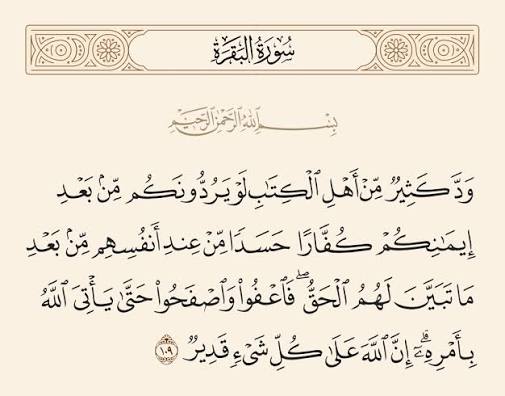 سُورَةُ الْبَقَرَةِ
بِسْمِ اللَّهِ الرَّحْمَٰنِ الرَّحِيمِ
وَدَّ كَثِيرٌ مِّنْ أَهْلِ الْكِتَابِ لَوْ يَرُدُّونَكُم مِّن بَعْدِ
إِيمَانِكُمْ كُفَّارًا حَسَدًا مِّنْ عِندِ أَنفُسِهِم مِّن بَعْدِ
مَا تَبَيَّنَ لَهُمُ الْحَقُّ ۖ فَاعْفُوا وَاصْفَحُوا حَتَّىٰ يَأْتِيَ اللَّهُ
بِأَمْرِهِ ۗ إِنَّ اللَّهَ عَلَىٰ كُلِّ شَيْءٍ قَدِيرٌ ١٠٩